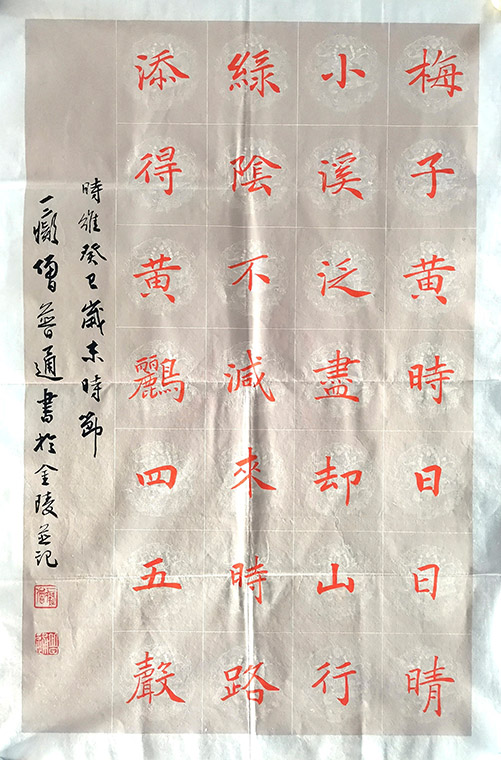 梅子黄時日日晴
小溪泛盡却山行
綠陰不減來時路
添得黄鸝四五聲
時維癸巳歲末時節
僧普通書於金陵並記